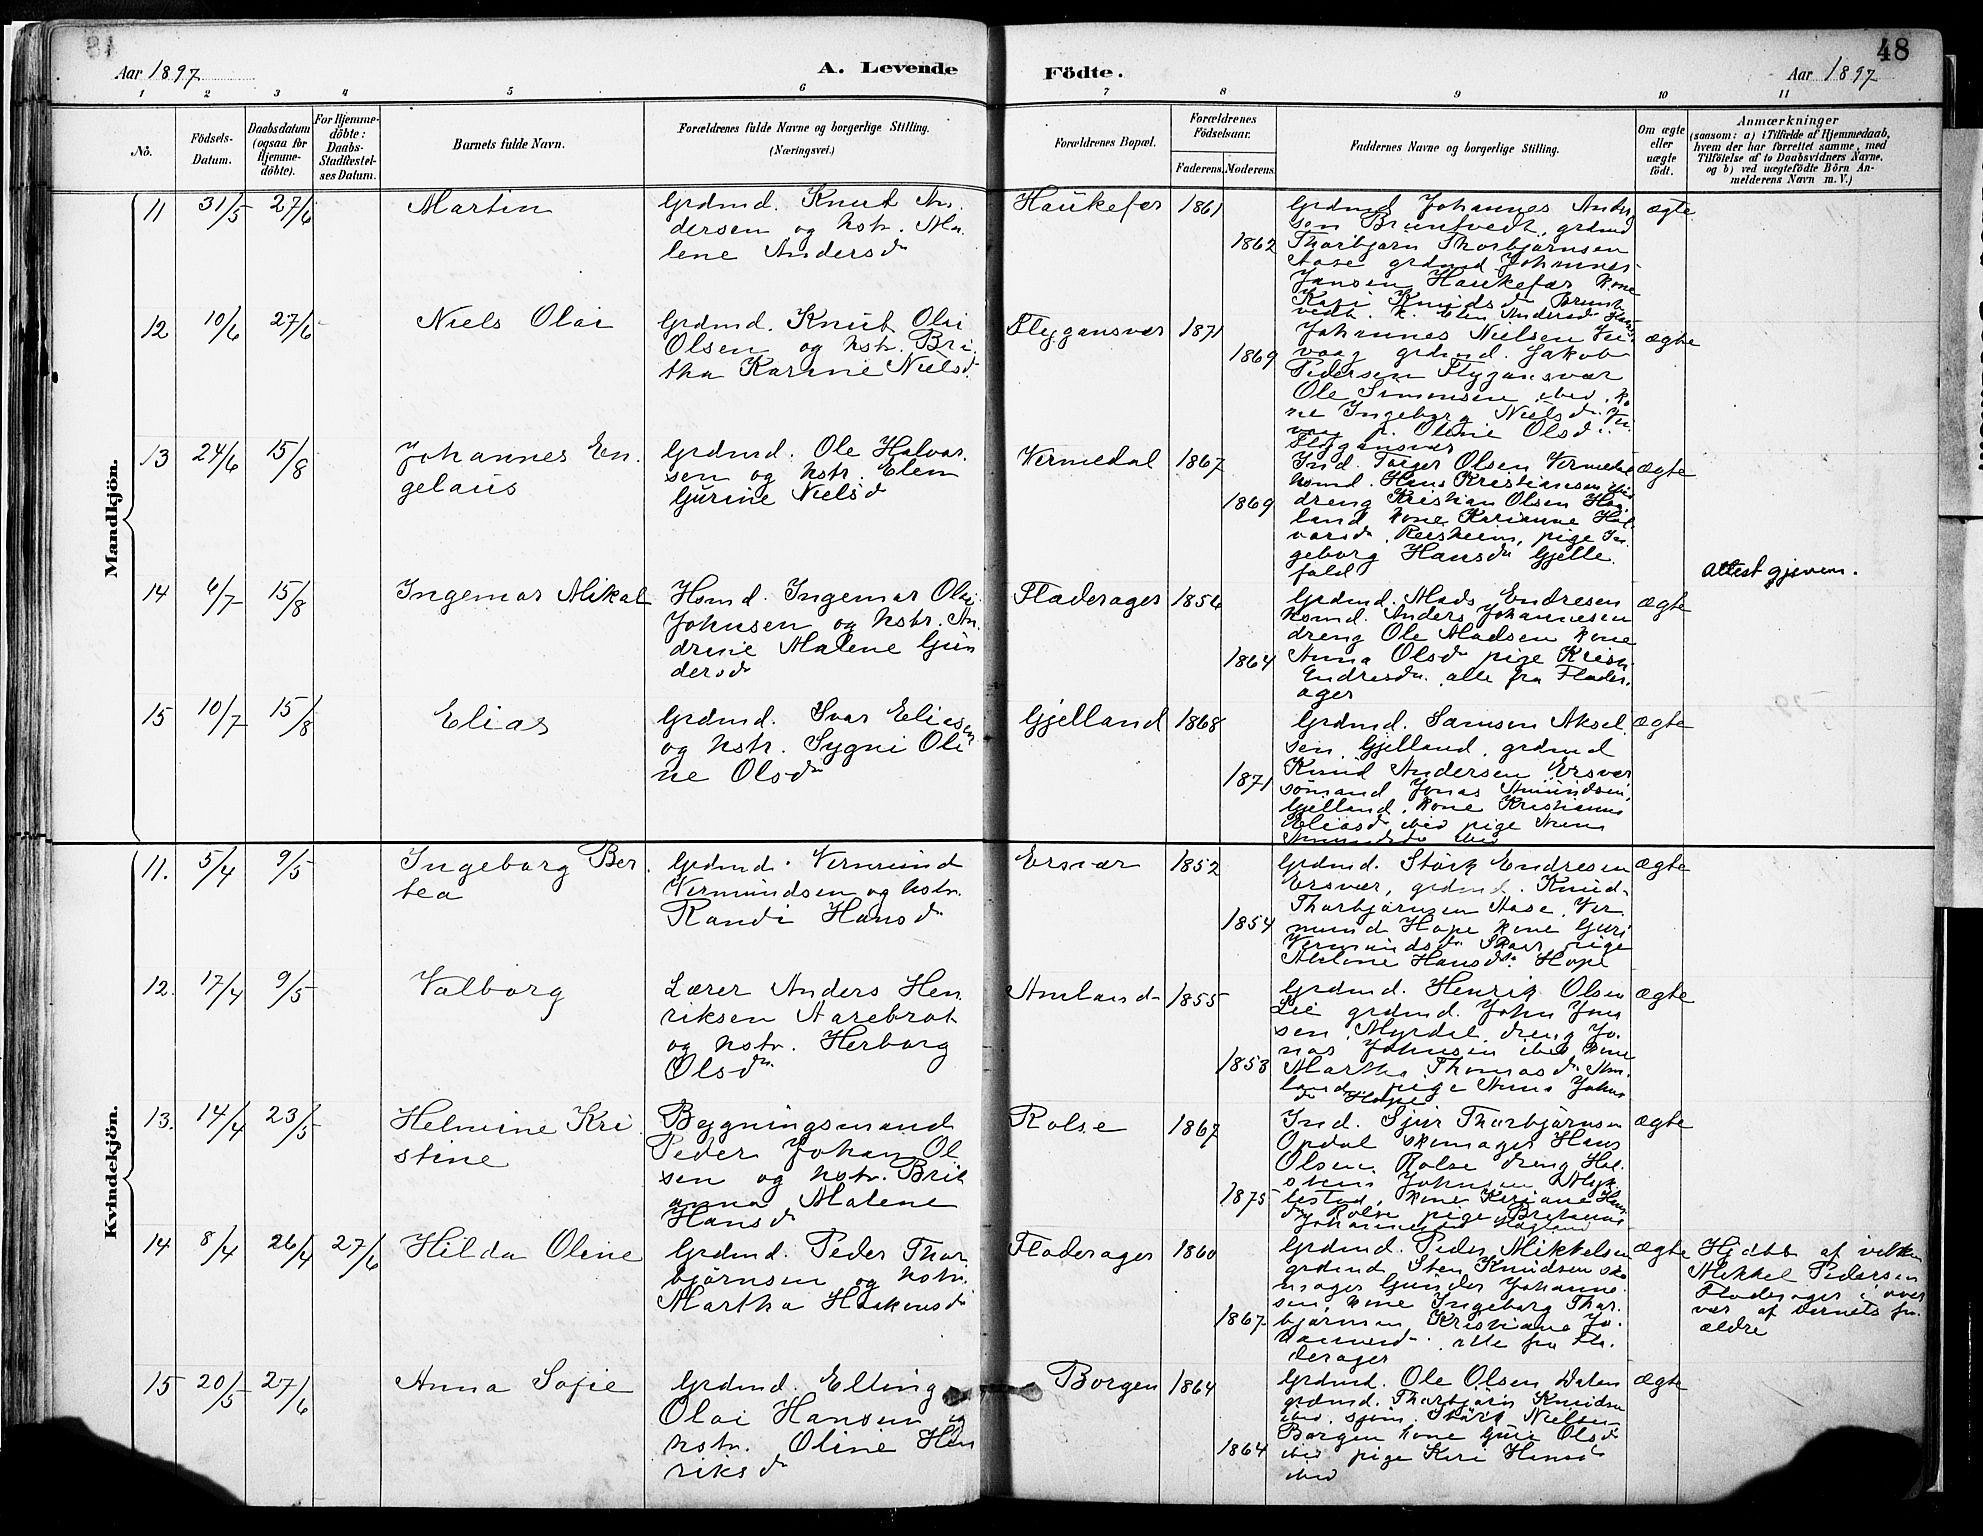 48
Aar 1897
A. Levende
Födte.
Aar 1897
1 2 3 4 5 6 7 8 9 10 11
No.
Födsels-
Datum.
Daabsdatum
(ogsaa for
Hjemme-
döbte).
For Hjemme-
döbte:
Daabs-
Stadfæstel-
ses Datum.
Barnets fulde Navn.
Forældrenes fulde Navne og borgerlige Stilling.
(Næringsvei.)
Forældrenes Bopæl.
Forældrenes
Födselsaar.
Faderens. Moderens.
Faddernes Navne og borgerlige Stilling.
Om ægte
eller
uægte
födt.
Anmærkninger
(saasom: a) i Tilfælde af Hjemmedaab,
hvem der har forrettet samme, med
Tilföielse af to Daabsvidners Navne,
og b) ved uægtefödte Börn An-
melderens Navn m. V.)
Mandkjön.
11 31/5 27/6
Martin
Grdmd. Knut An
dersen og hstr. Ma
lene Andersd
Haukefær
1861
1862
Grdmd Johannes Ander
sen Bruntvedt, grdmd
Thorbjørn Thorbjørnsen
Aase grdmd Johannes
Jansen Haukefær kone
Kari Knudsd
vedt. k. Elen Andersd
ægte
12 10/6 27/6
Niels Olai
Grdmd. Knut Olai
Olsen og hstr. Bri
tha Karine Nielsd.
Flygansvær
1871
1869
Johannes Nielsen
vaag grdmd. Jakob
Pedersen Flygansvær
Ole Simonsen ibid. ko
ne Ingeborg Nielsd.
Oline Olsd.
Flygansvær
ægte
13 24/6 15/8
Johannes En
gelaus
Grdmd. Ole Halvar
sen og hstr. Elen
Gurine Nielsd
Vermedal
1867
1869
Ind. Olsen Vermedal
hsmd. Hans Kristiansen ibid
dreng Kristian Olsen Haa
land, kone Karianne Hal
varsd. pige In
geborg Hansd. Gjelle
fald
ægte
14 6/7 15/8
Ingemar Mikal
Hsmd. Ingemar Olai
Johnsen og hstr. An
drine Malene Gun
dersd
Fladerager
1856
1864
Grdmd. Mads Endresen
hsmd. Anders Johannesen
dreng Ole Madsen kone
Anna Olsd. pige Krist.
Endresd. alle fra Flader
ager
ægte
Attest gjeven.
15 10/7 15/8
Elias
Grdmd. Ivar Eliasen
og hstr. Sygni Oli
ne Olsd
Gjelland
1868
1871
Grdmd. Samson Aksel
sen, Gjelland, grdmd
Knud Andersen Ersvær
sömand Jonas Amundsen,
Gjelland, kone Kristianne
Eliasd ibid pige
Amundsd. ibid
ægte
Kvindekjön.
11. 5/4 9/5
Ingeborg Ber
tea
Grdmd. Vermund
Vermundsen og hstr.
Randi Hansd
Ersvær
1852
1854
Grdmd. Störk Endresen
Ersvær, grdmd. Knud
Thorbjørnsen Aase, Ver
mund Hope kone Guri
Vermundsd. Skaar, pige
Hansd. Hope
ægte
12. 17/4 9/5
Valborg
Lærer Anders Hen
riksen Aarebrot
og hstr. Herborg
Olsd.
Amland
1855
1853
Grdmd. Henrik Olsen
Lie grdmd. John Jon
sen Myrdal, dreng Jo
nas Johnsen ibid kone
Martha Thomasd. Am
land pige Anna Johns
d. Hope
ægte
13. 14/4 23/5
Helmine Kri
stine
Bygningsmand
Peder Johan Ol
sen og hstr. Brit
anna Malene
Hansd
Rolse
1867
1875
Ind. Sjur Thorbjørnsen
Opdal skomager Hans
Olsen Rolse dreng Hal
Johnsen Myk
lestad, kone Han
Rolse pige
ægte
14 8/4 26/4 27/6
Hilda Oline
Grdmd. Peder Thor
bjørnsen og hstr.
Martha Haakonsd
Fladerager
1860
1867
Grdmd. Peder Mikkelsen
grdmd Sten Knudsen sko
mager Gunder Johanne
sen, kone Ingeborg Thor
bjørnsen Kristiane Jo
hannesd. alle fra Fla
derager
ægte
Hjdbt af
Mikkel Pedersen
Fladerager i over
vær af barnets for
ældre
15 20/5 27/6
Anna Sofie
Grdmd. Elling
Olai Hansen og
hstr. Oline Hen
riksd
Borgen
1864
1864
Grdmd. Ole Olsen Dalen
grdmd. Thorbjørn Knudsen
ibid, Störk Nielsen
Borgen kone Guri Olsd
ibid pige Kari Hansd
ibid
ægte